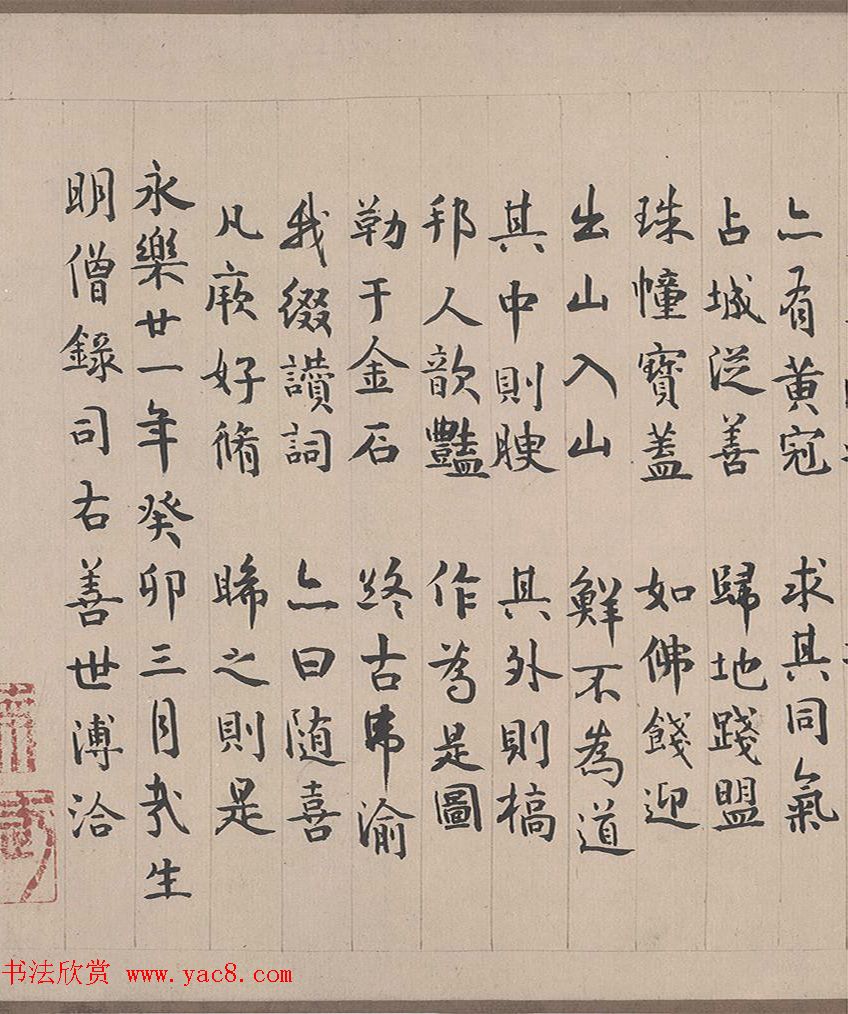 亦有黄冠 求其同氣
占城從善 歸地踐盟
珠幢寶蓋 如佛餞迎
出山入山 鮮不為道
其中則腴 其外則槁
邦人歆豔 作為是圖
勒于金石 終古弗渝
我綴讚詞 亦曰随喜
凡厥好脩 睎之則是
永樂廿一年癸卯三月哉生
明僧錄司右善世溥洽
书法欣赏 www.yac8.com